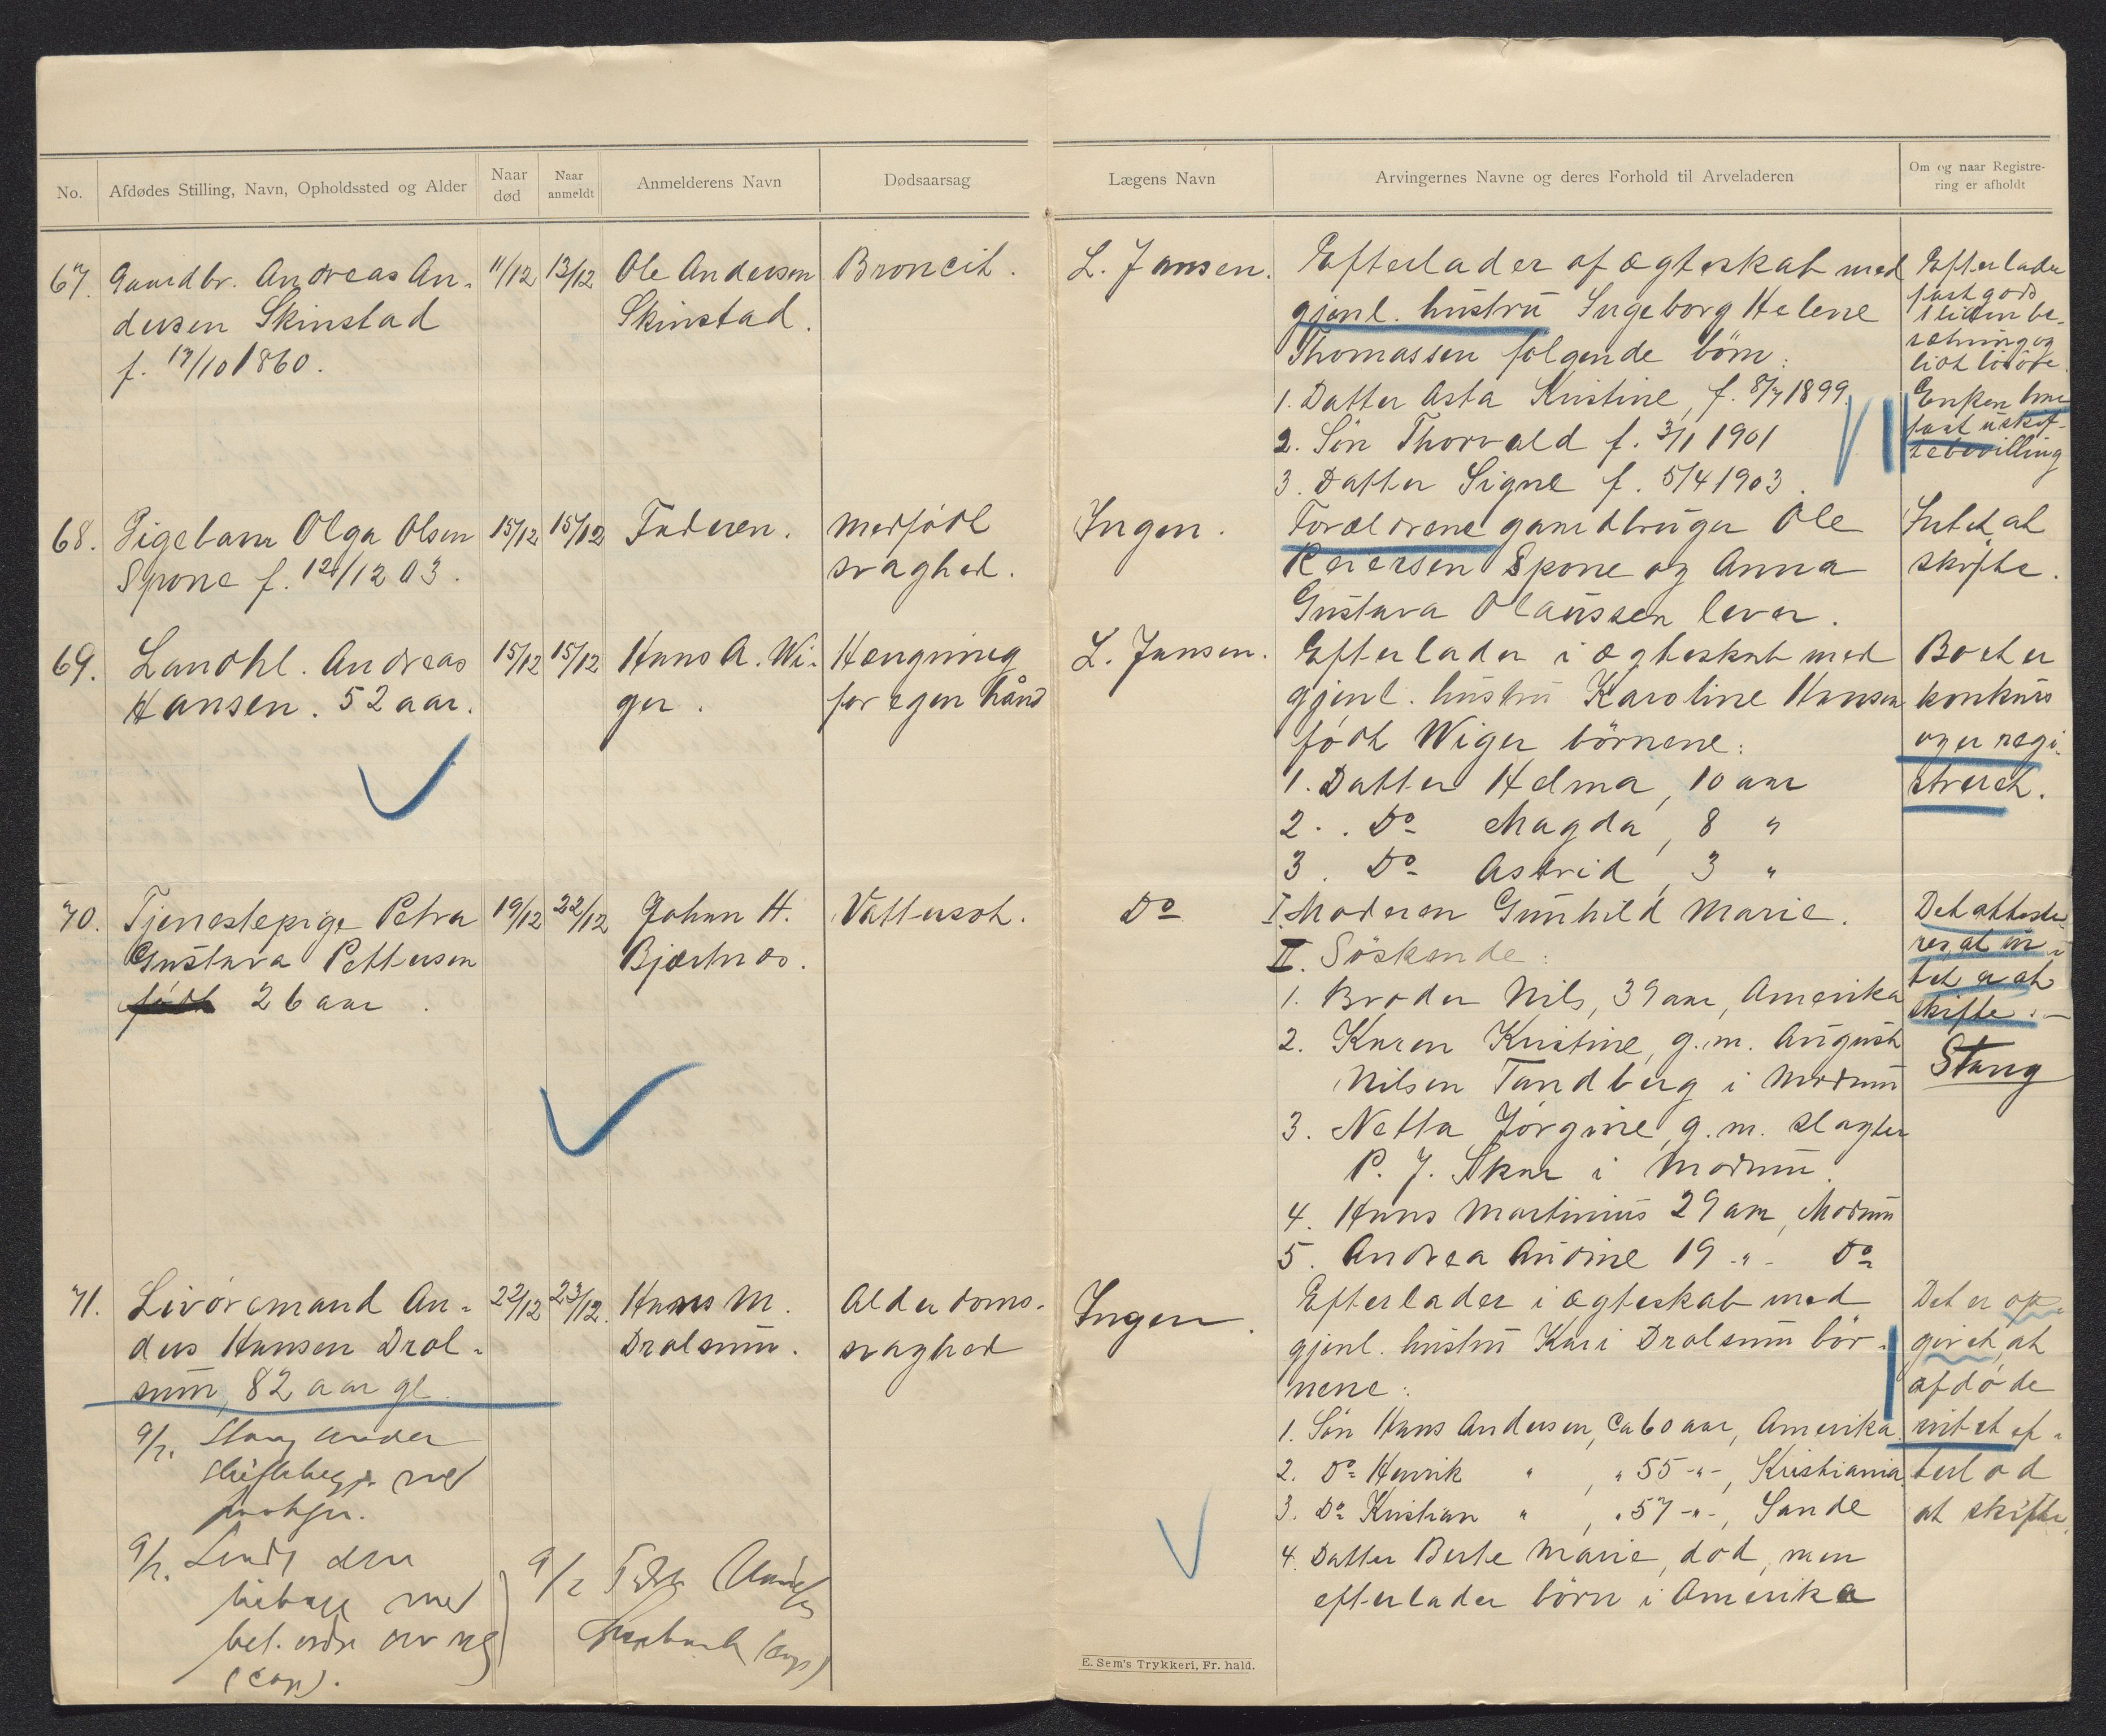 No.
Afdødes Stilling, Navn, Opholdssted og Alder
Naar død
Naar anmeldt
Anmelderens Navn
Dødsaarsag
Lægens Navn
Arvingernes Navne og deres Forhold til Arveladeren
Om og naar Registre-
ring er afholdt
67. Gaardbr. Andreas An-
dersen Skinstad
f. 17/10 1860.
11/12
13/12
Ole Andersen
Skinstad.
Broncit.
L. Jansen.
Efterlader af ægteskab med
gjenl. hustru Ingeborg Helene
Thomassen følgende börn:
1. Datter Asta Kristine, f. 8/7 1899
2. Sön Thorvald f. 3/1 1901
3. Datter Signe f. 5/4 1903.
Efterlader
fast gods
liden be-
sætning og
lidt lösöre.
Enken
uskif-
tebevilling
68. Pigebarn Olga Olsen
Spone f. 12/12 03.
15/12
15/12
Faderen.
Medfödt
svaghed.
Ingen.
Forældrene gaardbruger Ole
Reiersen Spone og Anna
Gustava Olaussen lever.
Intet at
skifte.
69. Landhl. Andreas
Hansen. 52 aar.
15/12
15/12
Hans A. Wi-
ger.
Hængning
for egen hånd
L. Jansen.
Efterlader i ægteskab med
gjenl. hustru Karoline Hansen
födt Wiger börnene:
1. Datter Helma, 10 aar
2. Do Magda, 8 "
3. Do Astrid, 3 "
Boet er
konkurs
og er regi-
streret.
70. Tjenestepige Petra
Gustava Pettersen
födt 26 aar.
19/12
22/12
Johan H.
Bjertnæs.
Vattersot.
Do
I. Moderen Gunhild Marie.
II. Söskende:
1. Broder Nils, 39 aar, Amerika
2. Karen Kristine, g.m. August
Nilsen Tandberg i Modum
3. Netta Jörgine, g.m. slagter
P. J. Skar i Modum.
4. Hans Martinius 29 aar, Modum
5. Andrea Audine 19 -"- Do
Det atteste-
res, at in-
tet er at
skifte.-
Stang
71. Livöremand An-
ders Hansen Dral-
sum, 82 aar gl.
22/12
23/12.
Hans M.
Dralsum.
Alderdoms-
svaghed
Ingen.
Efterlader i ægteskab med
gjenl. hustru Kari Dralsum bör-
nene:
1. Sön Hans Andersen, ca 60 aar, Amerika.
2. Do Henrik " , " 55 -"-, Kristiania
3. Do Kristian " , " 57 -"-, Sande
4. Datter Berte Marie, död, men
efterlader börn i Amerika
Det er op-
givet, at
afdöde
intet ef-
terlod
at skifte.
9/2. Stang
9/2.
(cop).
9/2
E. Sem's Trykkeri, Fr. hald.